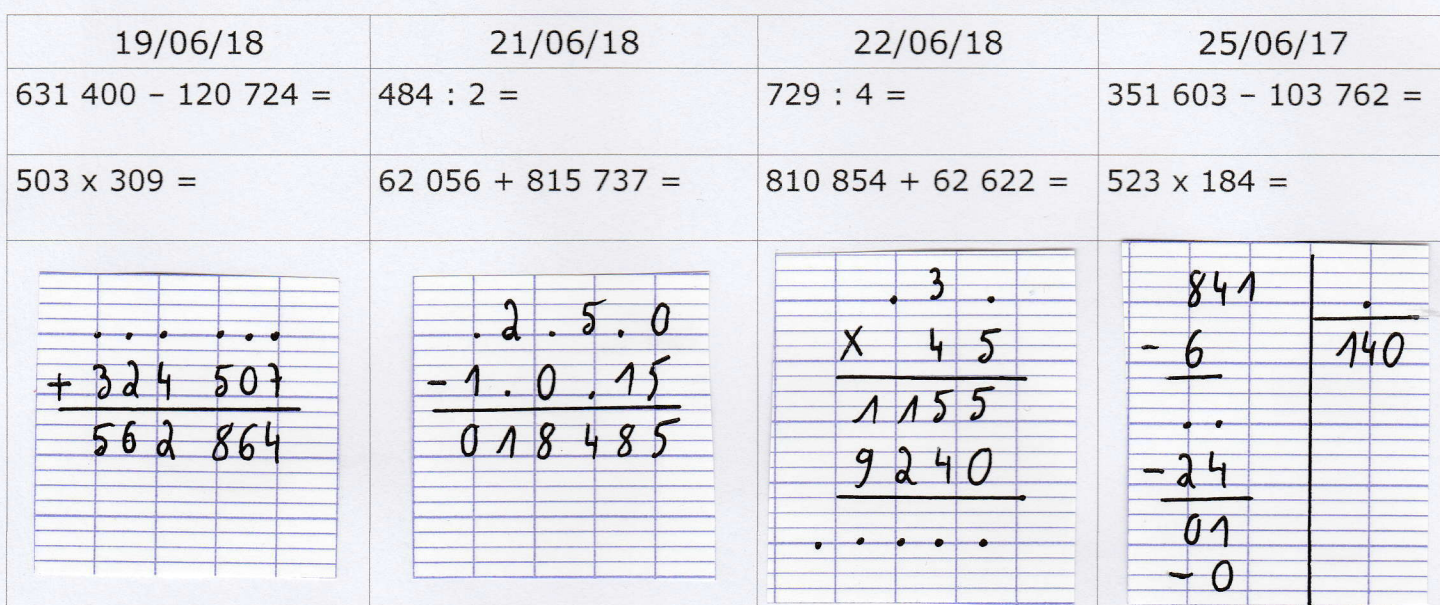 19/06/18 21/06/18 22/06/18 25/06/17
631 400 – 120 724 = 484 : 2 = 729 : 4 = 351 603 – 103 762 =
503 x 309 = 62 056 + 815 737 = 810 854 + 62 622 = 523 x 184 =
. . . . . .
+ 324 507
562 864
. 2 . 5 . 0
- 1 . 0 . 15
018 485
. 3 .
X 45
1155
9240
. . . . .
841 .
- 6 140
. .
- 24
01
- 0